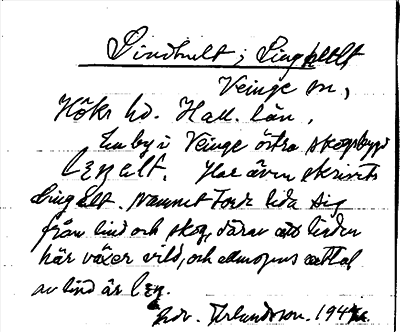 Lindhult; Linghelt
Veinge sn,
Hökr hd. Hall. län.
En by i Veinge östra skogsbygd
Har även skrivits
Lingelt. Namnet torde leda sig
från lind och skog, därav att linden
här växer vild, och allmogens uttal
av lind är leng.
Edv. Erlandsson. 194